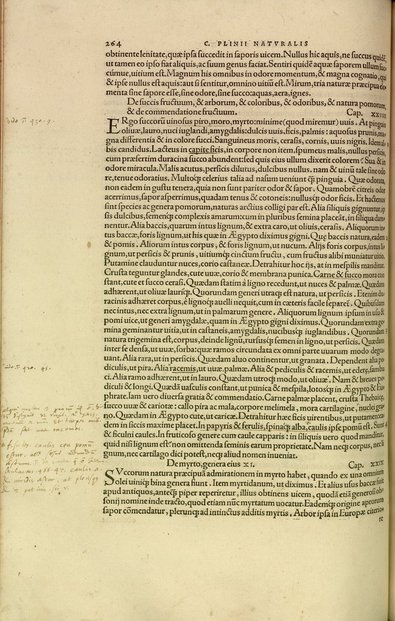 264 C. PLINII NATVRALIS
obtinente lenitate, quæ ipsa succedit in saporis uicem. Nullus hic aquis, ne succus quidẽ,
ut tamen eo ipso fiat aliquis, ac suum genus faciat. Sentiri quidẽ aquæ saporem aut suc
cumue, uitium est. Magnum his omnibus in odore momentum, & magna cognatio, qui
& ipse nullus est aquis: aut si sentitur, omnino uitiũ est. Mirum, tria naturæ præcipua ele
menta sine sapore esse, sine odore, sine succo: aquas, aera, ignes.
De succis fructuum, & arborum, & coloribus, & odoribus, & natura pomorum,
& de commendatione fructuum. Cap. XXVIII
ERgo succorũ uinosus piro, moro, myrto: minime (quod miremur) uuis. At pinguis
oliuæ, lauro, nuci iuglandi, amygdalis: dulcis uuis, ficis, palmis: aquosus prunis, ma
gna differentia & in colore succi. Sanguineus moris, cerasis, cornis, uuis nigris. Idem al
bis candidus. Lacteus in capite ficis, in corpore non item, spumeus malis, nullus persicis,
cum præsertim duracina succo abundent: sed quis eius ullum dixerit colorem? Sua & in
odore miracula. Malis acutus, persicis dilutus, dulcibus nullus. nam & uinũ tale sine odo
re, tenue odoratius. Multoq̃ celerius talia ad usum ueniunt q̃ pinguia. Quæ odorata,
non eadem in gustu tenera, quia non sunt pariter odor & sapor. Quamobrẽ citreis odor
acerrimus, sapor asperrimus, quadam tenus & cotoneis: nullusq̃ odor ficis. Et hactenus
sint species ac genera pomorum, naturas arctius colligi par est. Alia siliquis gignuntur ip
sis dulcibus, semenq̃ complexis amarum: cum in pluribus semina placeãt, in siliqua dam-
nentur. Alia baccis, quarum intus lignum, & extra caro, ut oliuis, cerasis. Aliquorum in
tus baccæ, foris lignum, ut his quæ in Ægypto diximus gigni. Quæ baccis natura, eadem
& pomis. Aliorum intus corpus, & foris lignum, ut nucum. Alijs foris corpus, intus lig
num, ut persicis & prunis, uitiumq̃ cinctum fructu, cum fructus alibi muniatur uitio.
Putamine clauduntur nuces, corio castaneæ. Detrahitur hoc ijs, at in mespilis manditur.
Crusta teguntur glandes, cute uuæ, corio & membrana punica. Carne & succo mora con
stant, cute et succo cerasi. Quædam statim à ligno recedunt, ut nuces & palmæ. Quædam
adhærent, ut oliuæ lauriq̃. Quorundam generi utraq̃ est natura, ut persicis. Etenim du-
racinis adhæret corpus, è lignoq̃ auelli nequit, cum in cæteris facile separet᷑. Quibusdam
nec intus, nec extra lignum, ut in palmarum genere. Aliquorum lignum ipsum in usu &
pomi uice, ut generi amygdalæ, quam in Ægypto gigni diximus. Quorundam extra ge
mina geminatur uitia, ut in castaneis, amygdalis, nucibusq̃ iuglandibus. Quorundam
natura trigemina est, corpus, deinde lignũ, rursusq̃ semen in ligno, ut persicis. Quædam
inter se densa, ut uuæ, sorba: quæ ramos circundata ex omni parte uuarum modo degra
uant. Alia rara, ut persicis. Quædam aluo continentur, ut granata. Dependent alia pe
diculis, ut pira. Alia racemis, ut uuæ, palmæ. Alia & pediculis & racemis, ut ederæ, sambu
ci. Alia ramo adhærent, ut in lauro. Quædam utroq̃ modo, ut oliuæ. Nam & breues pe
diculi & longi. Quædã uasculis constant, ut punica & mespila, lotosq̃ in Ægypto & Eu
phrate. Iam uero diuersa gratia & commendatio. Carne palmæ placent, crusta Thebaicę,
succo uuæ & cariotæ: callo pira ac mala, corpore melimela, mora cartilagine, nucleo gra
na, quædam in Ægypto cute, ut caricæ. Detrahitur hæc ficis uirentibus, ut putamen: ea-
dem in siccis maxime placet. In papyris & ferulis, spinaq̃ alba, caulis ipse pomũ est. Sunt
& ficulnei caules. In fruticoso genere cum caule capparis: in siliquis uero quod manditur,
quid nisi lignum est? non omittenda seminis earum proprietate. Nam neq̃ corpus, neq̃ lig
num, nec cartilago dici potest, neq̃ aliud nomen inueniat.
De myrto, genera eius XI. Cap. XXIX.
SVccorum natura præcipua admirationem in myrto habet, quando ex una omnium
Solei uiniq̃ bina genera fiunt. Item myrtidanum, ut diximus. Et alius usus baccæ fuit
apud antiquos, anteq̃ piper reperiretur, illius obtinens uicem, quodã etiã generosi obso
nij nomine inde tracto, quod etiam nũc myrtatum uocatur. Eademq̃ origine aprorum
sapor cõmendatur, plerunq̃ ad intinctus additis myrtis. Arbor ipsa in Europæ citeriore